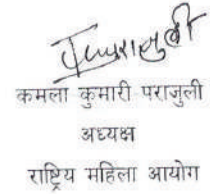 कमला कुमारी पराजुली
अध्यक्ष
राष्ट्रिय महिला आयोग